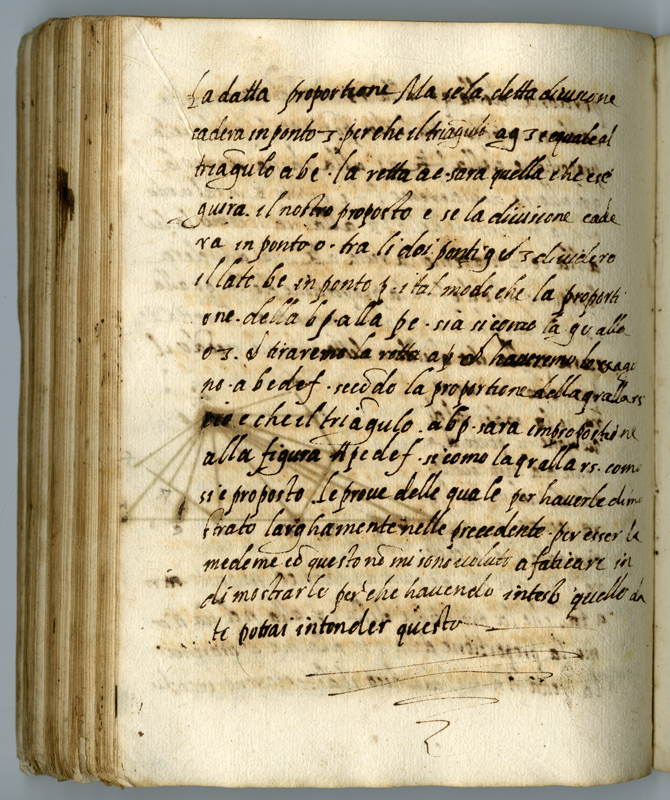 La datta proportione Ma se la detta divisione
cadera in ponto 3. perche il triāgulo a g 3 e equale al
triāgulo a b e. la retta a e. sara quella che ese
guira. il nostro proposto e se la divisione cade
ra in ponto o. tra li doi ponti g et 3 dividero
il lato be in ponto p. i tal modo che la proporti
one. della b p. alla p e. sia si como la g o alla
o 3. et tiraremo la retta a p et haveremo
no. a b e d e f. secōdo la proportione della q r alla rs
e che il triāgulo. a b p. sara in proportione
alla figura A p e d e f. si como la q r alla r s. como
si e proposto. Le prove delle quale per haverle dimo
strato larghamente nelle precedente. per esser le
medeme ed questo nō mi sono voluto a faticare in
dimostrarle perche havendo inteso quelle da
te potrai intender questo